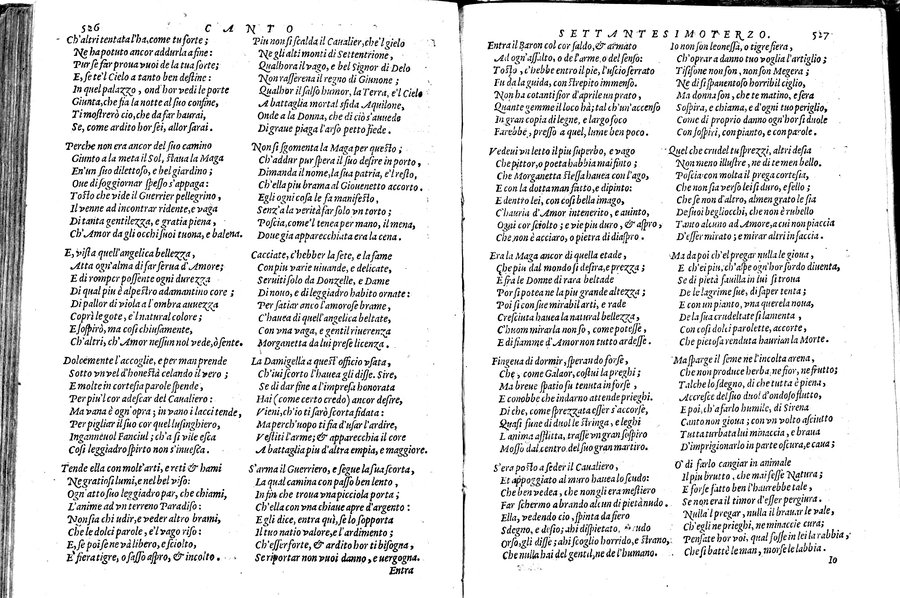 526 CANTO
Ch'altri tentata l'ha, come tu forte;
Ne ha potuto ancor addurla a fine:
Pur se far proua vuoi de la tua sorte;
E, se te'l Cielo a tanto ben destine:
In quel palazzo, ond'hor vedi le porte
Giunta, che fia la notte al suo confine,
Ti mostrerò cio, che da far haurai,
Se, come ardito hor sei, allor sarai.
Perche non era ancor del suo camino
Giunto a la meta il Sol, staua la Maga
En'un suo dilettoso, e bel giardino;
Oue di soggiornar spesso s'appaga:
Tosto che vide il Guerrier pellegrino,
Il venne ad incontrar ridente, e vaga
Di tanta gentilezza, e gratia piena,
Ch'Amor da gli occhi suoi tuona, e balena.
E, vista quell'angelica bellezza,
Atta ogn'alma di far serua d'Amore;
E di romper possente ogni durezza
Di qual piu è alpestro adamantino core;
Di pallor di viola a l'ombra auuezza
Coprì le gote, e'l natural colore;
E sospirò, ma così chiusamente,
Ch'altri, ch'Amor nessun nol vede, ò sente.
Dolcemente l'accoglie, e per man prende
Sotto vn vel d'honestà celando il vero;
E molte in cortesia parole spende,
Per piu'l cor adescar del Caualiero:
Ma vana è ogn'opra; in vano i lacci tende,
Per pigliar il suo cor quel lusinghiero,
Ingannenol Fanciul; ch'a sì vile esca
Così leggiadro spirto non s'inuesca.
Tende ella con molt'arti, e reti & hami
Ne gratiosi lumi, e nel bel viso:
Ogn'atto suo leggiadro par, che chiami,
L'anime ad vn terreno Paradiso:
Non sia chi udir, e veder altro brami,
Che le dolci parole, e'l vago riso:
E, se poi se nè và libero, e sciolto,
E' fiera tigre, o sasso aspro, & incolto.
Piu non si scalda il Caualier, che'l gielo
Ne gli alti monti di Settentrione,
Qualhora il vago, e bel Signor di Delo
Non rasserena il regno di Giunone;
Qualhor il salso humor, la Terra, e'l Cielo
A battaglia mortal sfida Aquilone,
Onde a la Donna, che di ciò s'auuede
Di graue piaga l'arso petto fiede.
Non si sgomenta la Maga per questo;
Ch'addur pur spera il suo desire in porto,
Dimanda il nome, la sua patria, e'l resto,
Ch'ella piu brama al Giouenetto accorto.
Egli ogni cosa le fa manifesto,
Senz'a la verità far solo vn torto;
Poscia, come'l tenea per man, il mena,
Doue gia apparecchiata era la cena.
Cacciate, c'hebber la sete, e la fame
Con piu varie uiuande, e delicate,
Seruiti solo da Donzelle, e Dame
Di nouo, e di leggiadro habito ornate:
Per satiar anco l'amorose brame,
C'hauea di quell'angelica beltate,
Con vna vaga, e gentil riuerenza
Morganetta da lui prese licenza.
La Damigella a quest'officio vsata,
Ch'iui scorto l'hauea gli disse. Sire,
Se di dar fine a l'impresa honorata
Hai (come certo credo) ancor desire,
Vieni, ch'io ti sarò scorta fidata:
Ma perch'uopo ti fia d'usar l'ardire,
Vestiti l'arme; & apparecchia il core
A battaglia piu d'altra empia, e maggiore.
S'arma il Guerriero, e segue la sua scorta,
La qual camina con passo ben lento,
In fin che troua vna picciola porta;
Ch'ella con vna chiaue apre d'argento:
E gli dice, entra quì, se lo sopporta
Il tuo natio valore, e l'ardimento;
Ch'esser forte, & ardito hor ti bisogna,
Se riportar non vuoi danno, e uergogna.
Entra
SETTANTESIMOTERZO. 527
Entra il Baron col cor saldo, & armato
Ad ogn'assalto, o de l'arme, o del senso:
Tosto, c'hebbe entro il pie, l'uscio serrato
Fu da la guida, con strepito immenso.
Non ha cotanti fior d'aprile un prato,
Quante gemme il loco hà; tal ch'un'accenso
In gran copia di legne, e largo foco
Farebbe, presso a quel, lume ben poco.
Vedeui vn letto il piu superbo, e vago
Che pittor, o poeta habbia mai finto;
Che Morganetta stessa hauea con l'ago,
E con la dotta man fatto, e dipinto:
E dentro lei, con così bella imago,
C'hauria d'Amor intenerito, e auinto,
Ogni cor sciolto; e vie piu duro, & aspro,
Che non è acciaro, o pietra di diaspro.
Era la Maga ancor di quella etade,
Che piu dal mondo si desira, e prezza;
E fra le Donne di rara beltade
Por si potea ne la piu grande altezza;
Poi sì con sue mirabil arti, e rade
Cresciuta hauea la natural bellezza,
C'huom mirarla non so, come potesse,
E di fiamme d'Amor non tutto ardesse.
Fingeua di dormir, sperando forse,
Che, come Galaor, costui la preghi;
Ma breue spatio su tenuta in forse,
E conobbe che indarno attende prieghi.
Di che, come sprezzata esser s'accorse,
Quasi fune di duol le stringa, e leghi
L'anima afflitta, trasse vn gran sospiro
Mosso dal centro del suo gran martiro.
S'era posto a seder il Caualiero,
Et appoggiato al muro hauea lo scudo:
Che ben vedea, che non gli era mestiero
Far schermo a brando alcun di pietà nudo.
Ella, vedendo cio, spinta da fiero
Sdegno, e desio; ahi dispietato, crudo
Orso, gli disse; ahi scoglio horrido, e strano,
Che nulla hai del gentil, ne de l'humano.
Io non son leonessa, o tigre fiera,
Ch'oprar a danno tuo voglia l'artiglio;
Tisifone non son, non son Megera;
Ne di sì spauentoso horribil ciglio,
Ma donna son, che te mattino, e sera
Sospira, e chiama, e d'ogni tuo periglio,
Come di proprio danno ogn'hor si duole
Con sospiri, con pianto, e con parole.
Quel che crudel tu sprezzi, altri desia
Non meno illustre, ne di te men bello.
Poscia con molta il prega cortesia,
Che non sia verso lei sì duro, e fello;
Che se non d'altro, almen grato le sia
De suoi begliocchi, che non è rubello
Tanto alcuno ad Amore, a cui non piaccia
D'esser mirato; e mirar altri in faccia.
Ma da poi ch'el pregar nulla le gioua,
E ch'ei piu, ch'aspe ogn'hor sordo diuenta,
Se di pietà fauilla in lui si troua
De le lagrime sue, di saper tenta;
E con un pianto, vna querela noua,
De la sua crudeltate si lamenta,
Con così dolci parolette, accorte,
Che pietosa renduta haurian la Morte.
Ma sparge il seme ne l'incolta arena,
Che non produce herba, ne fior, ne frutto;
Talche lo sdegno, di che tutta è piena,
Accresce del suo duol d'ondoso flutto,
E poi, ch'a farlo humile, di Sirena
Canto non gioua; con vn volto asciutto
Tutta turbata lui minaccia, e braua
D'imprigionarlo in parte oscura, e caua;
O' di farlo cangiar in animale
Il piu brutto, che mai fesse Natura;
E forse fatto ben l'haurebbe tale,
Se non era il timor d'esser pergiura.
Nulla'l pregar, nulla il brauar le vale,
Ch'egli ne prieghi, ne minaccie cura;
Pensate hor voi, qual fosse in lei la rabbia,
Che si batté le man, morse le labbia.
Io